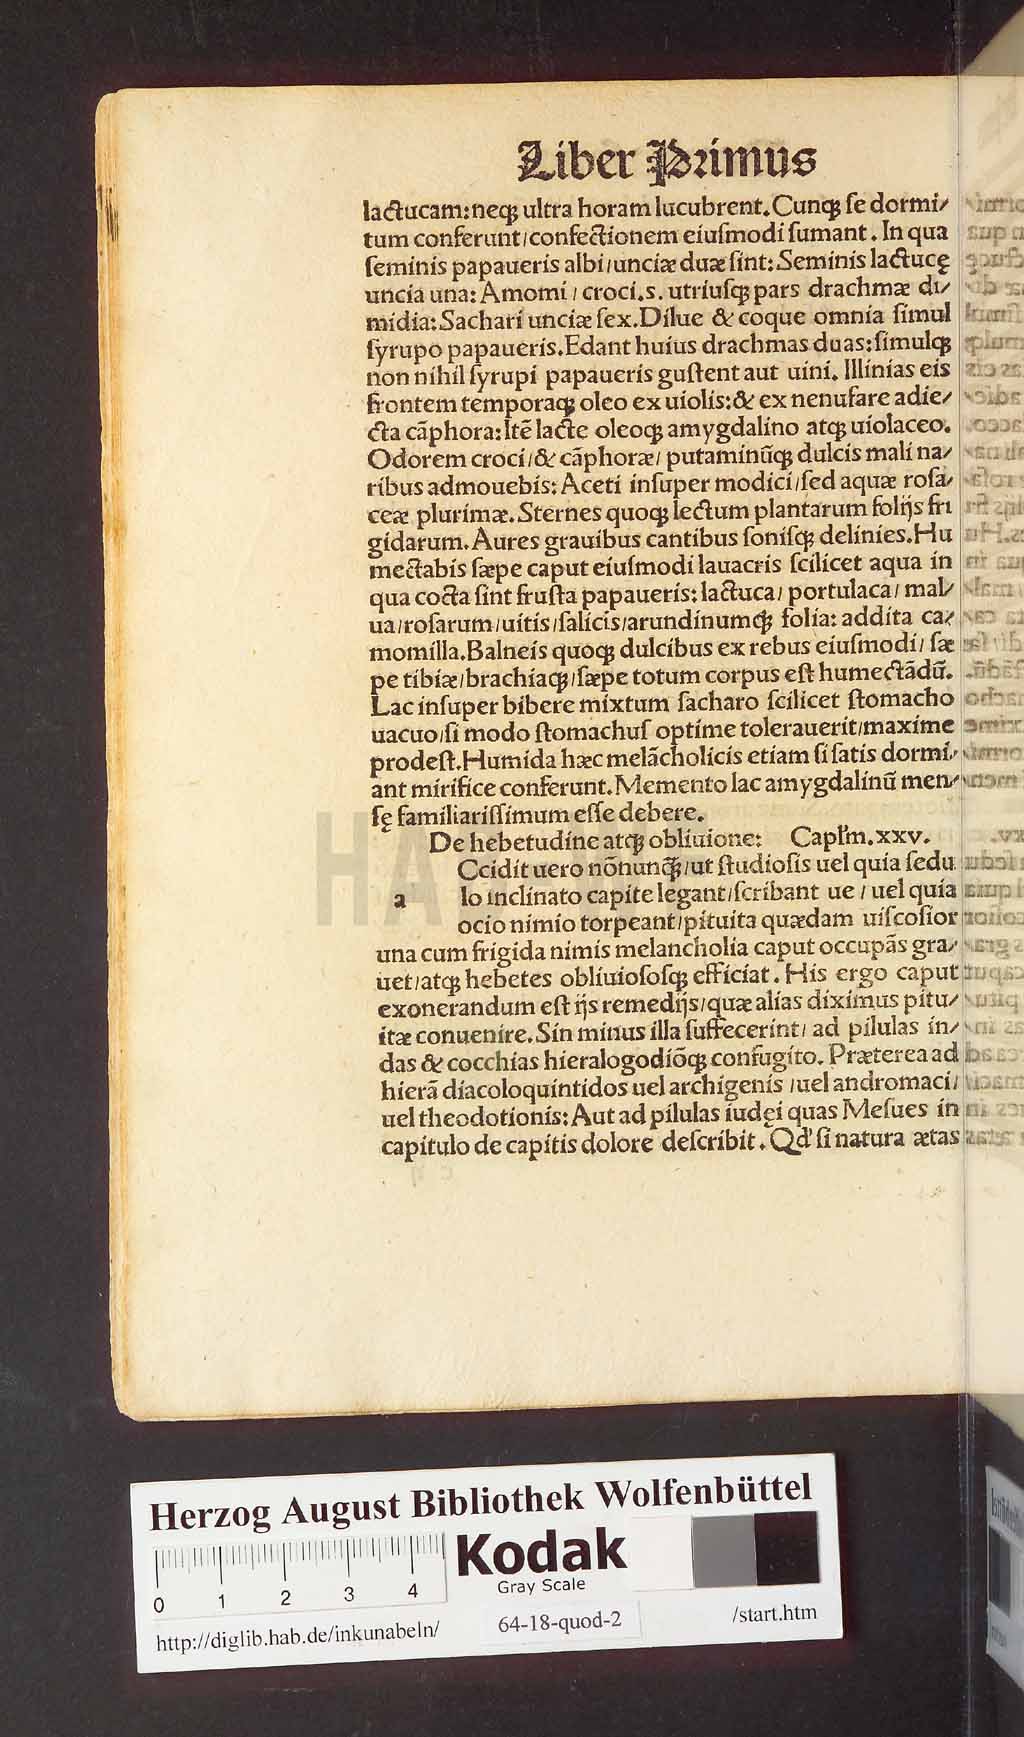 Liber Primus
lactucam: neqꝫ ultra horam lucubrent. Cunqꝫ ſe dormi/
tum conferunt/confectionem eiuſmodi ſumant. In qua
ſeminis papaueris albi/unciæ duæ ſint: Seminis lactucę
uncia una: Amomi/ croci.s. utriuſqꝫ pars drachmæ di/
midia: Sachari unciæ ſex. Dilue & coque omnia ſimul
ſyrupo papaueris. Edant huius drachmas duas: ſimulqꝫ
non nihil ſyrupi papaueris guſtent aut uini. Illinias eis
frontem temporaqꝫ oleo ex uiolis: & ex nenufare adie/
cta cãphora: Itẽ lacte oleoqꝫ amygdalino atqꝫ uiolaceo.
Odorem croci/& cãphoræ/ putaminũqꝫ dulcis mali na/
ribus admouebis: Aceti inſuper modici/ſed aquæ roſa/
ceæ plurimæ. Sternes quoqꝫ lectum plantarum folijs fri
gidarum. Aures grauibus cantibus ſoniſqꝫ delinies. Hu
mectabis ſæpe caput eiuſmodi lauacris ſcilicet aqua in
qua cocta ſint fruſta papaueris: lactuca/ portulaca/ mal/
ua/roſarum/uitis/ſalicis/arundinumqꝫ folia: addita ca/
momilla. Balneis quoqꝫ dulcibus ex rebus eiuſmodi/ ſæ
pe tibiæ/brachiaqꝫ/ſæpe totum corpus eſt humectãdũ.
Lac inſuper bibere mixtum ſacharo ſcilicet ſtomacho
uacuo/ſi modo ſtomachuſ optime tolerauerit/maxime
prodeſt. Humida hæc melãcholicis etiam ſi ſatis dormi/
ant mirifice conferunt. Memento lac amygdalinũ men/
ſę familiariſſimum eſſe debere.
De hebetudine atqꝫ obliuione: Capľm. xxv.
Ccidit uero nõnunqꝫ̃/ut ſtudioſis uel quia ſedu
a lo inclinato capite legant/ſcribant ue/ uel quia
ocio nimio torpeant/pituita quædam uiſcoſior
una cum frigida nimis melancholia caput occupãs gra/
uet/atqꝫ hebetes obliuioſoſqꝫ efficiat. His ergo caput
exonerandum eſt ijs remedijs/quæ alias diximus pitu/
itæ conuenire. Sin minus illa ſuffecerint/ ad pilulas in/
das & cocchias hieralogodiõqꝫ confugito. Præterea ad
hierã diacoloquintidos uel archigenis/uel andromaci/
uel theodotionis: Aut ad pilulas iudęi quas Meſues in
capitulo de capitis dolore deſcribit. Qď ſi natura ætas
HA
Herzog August Bibliothek Wolfenbüttel
0 1 2 3 4
Kodak
Gray Scale
http://diglib.hab.de/inkunabeln/
64-18-quod-2
/start.htm